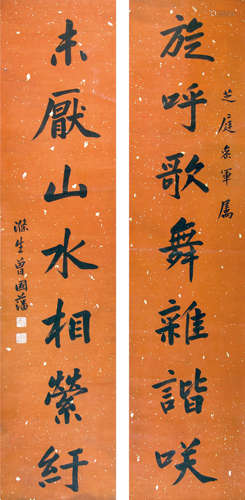 芝庭參軍屬
旋呼歌舞雜諧咲
未厭山水相縈紆
滌生曾國藩